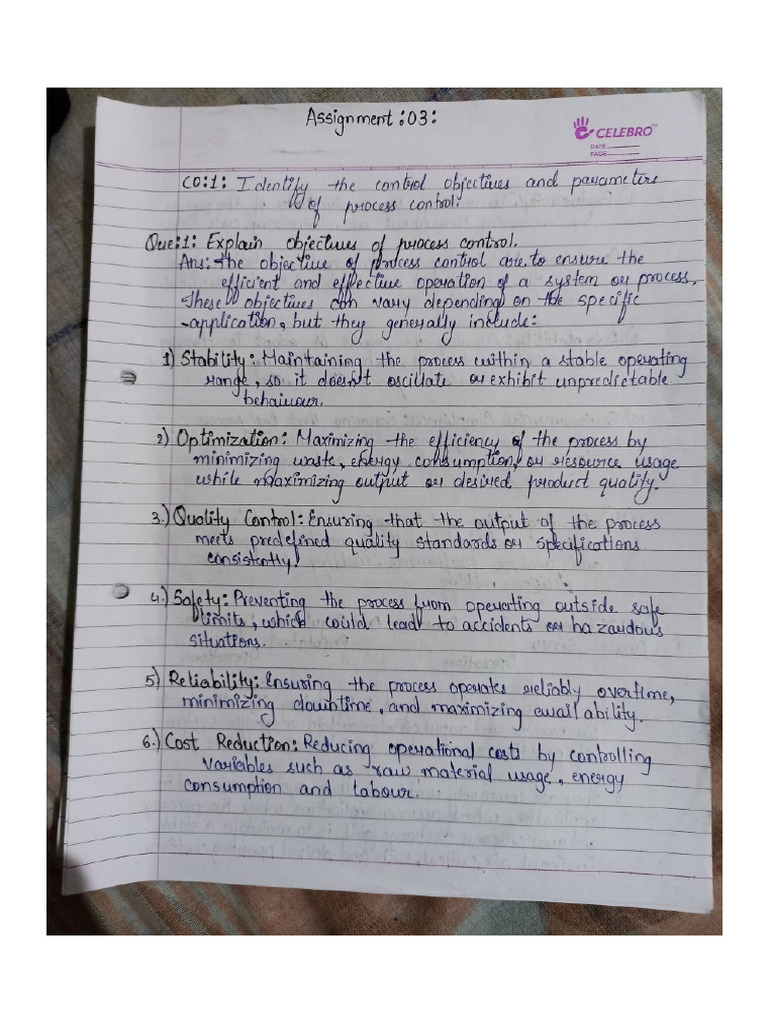 Assignment:03:
CELEBRO
DATE
PAGE
CO:1: Identify the control objectives and parameters
of process control.
Que:1: Explain objectives of process control.
Ans: The objective of process control are to ensure the
efficient and effective operation of a system or process.
These objectives can vary depending on the specific
application, but they generally include:
1) Stability: Maintaining the process within a stable operating
range, so it doesn't oscillate or exhibit unpredictable
behaiour.
2) Optimization: Maximizing the efficiency of the process by
minimizing waste, energy consumption, or resource usage
while maximizing output or desired product quality.
3.) Quality Control: Ensuring that the output of the process
meets predefined quality standards or specifications
consistently.
4.) Safety: Preventing the process from operating outside safe
limits, which could lead to accidents or hazardous
situations.
5) Reliability: Ensuring the process operates reliably overtime,
minimizing downtime, and maximizing availability.
6.) Cost Reduction: Reducing operational costs by controlling
variables such as raw material usage, energy
consumption and labour.